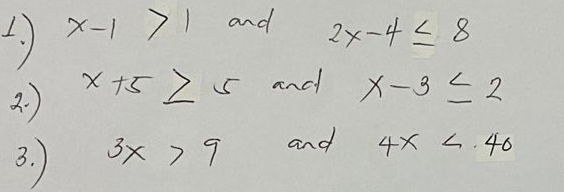 1.) x-1 > 1 and 2x-4 ≤ 8
2.) x+5 ≥ 5 and x-3 ≤ 2
3.) 3x > 9 and 4x < 40